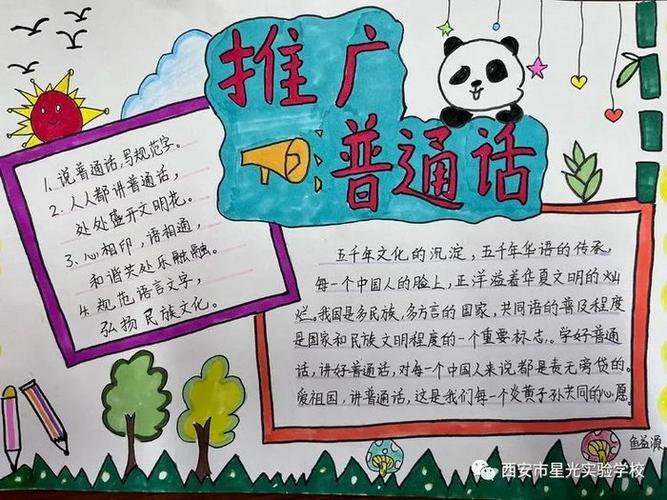 推广
普通话
1、说普通话,写规范字。
2、人人都讲普通话,
处处盛开文明花。
3、心相印,语相通,
和谐共处乐融融。
4、规范语言文字,
弘扬民族文化。
五千年文化的沉淀,五千年华语的传承,
每一个中国人的脸上,正洋溢着华夏文明的灿
烂。我国是多民族,多方言的国家,共同语的普及程度
是国家和民族文明程度的一个重要标志。学好普通
话,讲好普通话,对每一个中国人来说都是责无旁贷的。
爱祖国,讲普通话,这是我们每一个炎黄子孙共同的心愿。
鱼益源
西安市星光实验学校